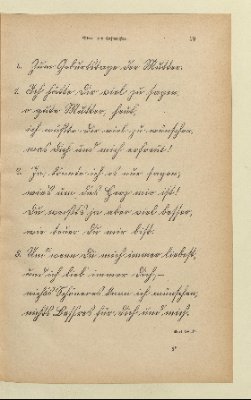 2. Zum Geburtstage der Mutter.
1. Ich hätte dir viel zu sagen,
o gute Mutter, heut,
ich wüßte dir viel zu wünschen,
was dich und mich erfreut!
2. Ja, könnte ich es nur sagen,
wie's um das Herz mir ist!
Du weißt es ja aber viel besser,
wie teuer du mir bist.
3. Und wenn du mich immer liebest,
und ich lieb immer dich, –
nichts Schöneres kann ich wünschen,
nichts Bess'res für dich und mich.